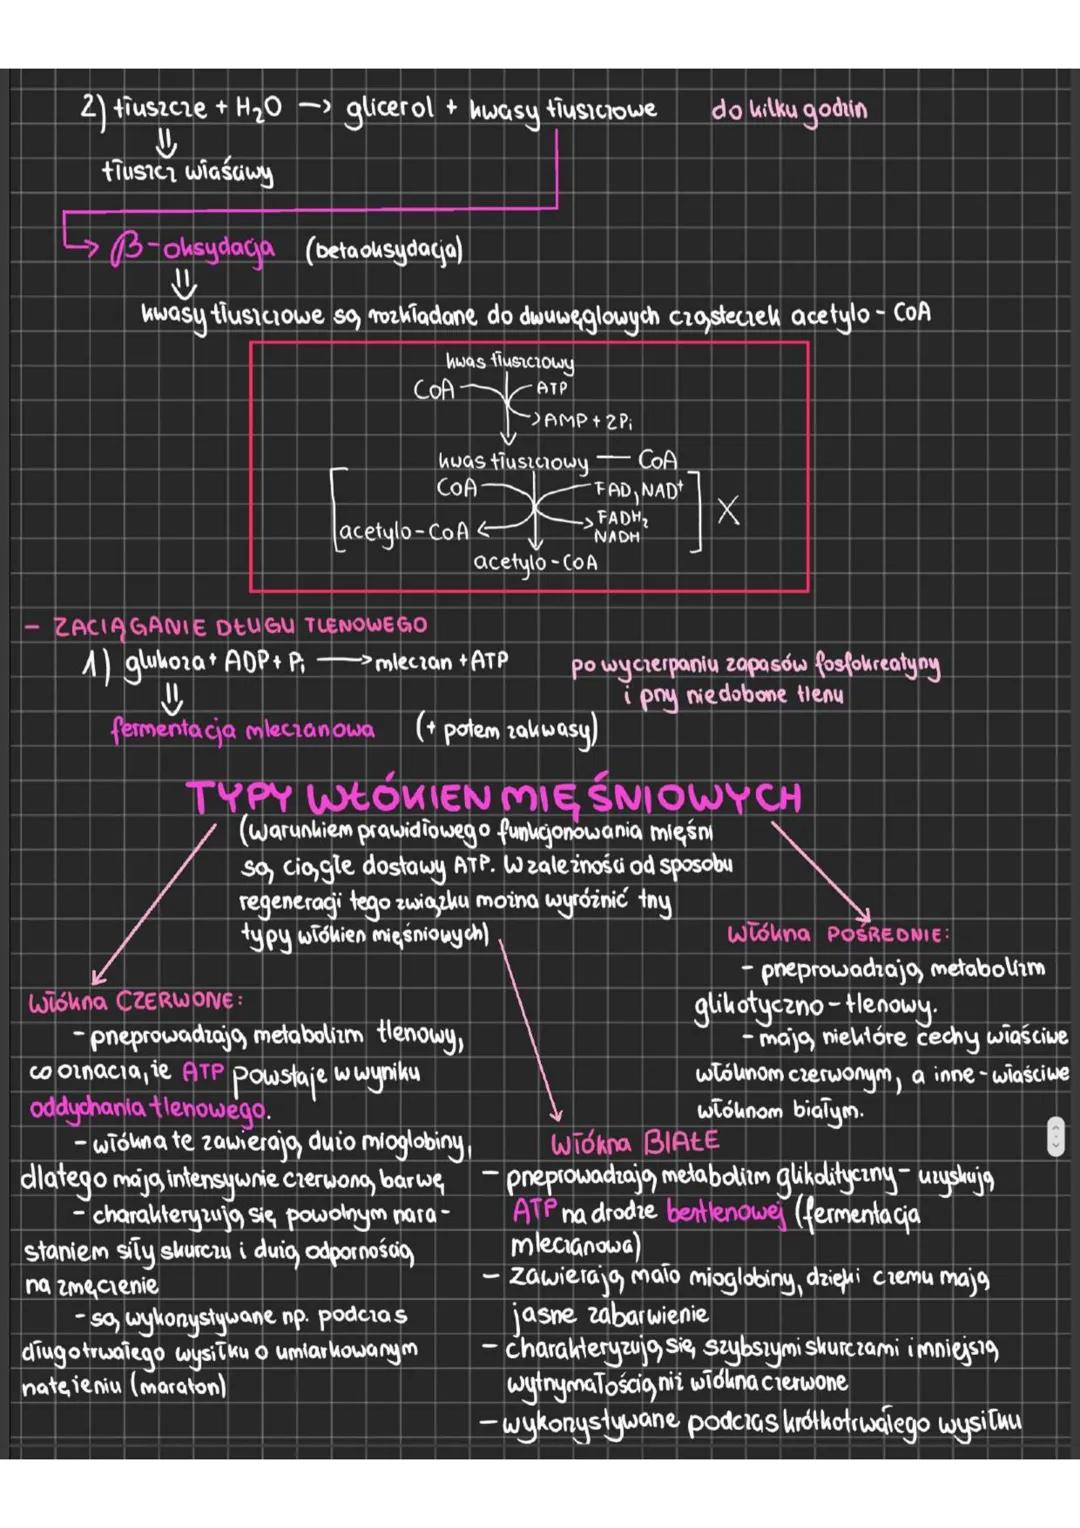 2) tłuszcze + H₂O → glicerol + kwasy tłuszczowe do kilku godzin
⇓
tłuszcz właściwy
→ β-oksydacja (betaoksydacja)
⇓
kwasy tłuszczowe są rozkładane do dwuwęglowych cząsteczek acetylo-CoA
kwas tłuszczowy
CoA ATP
AMP + 2Pi
kwas tłuszczowy — CoA
CoA FAD, NAD⁺
acetylo-CoA FADH₂
NADH
acetylo-CoA
X
- ZACIĄGANIE DŁUGU TLENOWEGO
1) glukoza + ADP + Pi → mleczan + ATP po wyczerpaniu zapasów fosfokreatyny
⇓ i przy niedoborze tlenu
fermentacja mleczanowa (+ potem zakwasy)
TYPY WŁÓKIEN MIĘŚNIOWYCH
(warunkiem prawidłowego funkcjonowania mięśni
są ciągłe dostawy ATP. W zależności od sposobu
regeneracji tego związku można wyróżnić trzy
typy włókien mięśniowych)
Włókna CZERWONE:
- przeprowadzają metabolizm tlenowy,
co oznacza, że ATP powstaje w wyniku
oddychania tlenowego.
- włókna te zawierają dużo mioglobiny,
dlatego mają intensywnie czerwoną barwę
- charakteryzują się powolnym nara-
staniem siły skurczu i dużą odpornością
na zmęczenie
- są wykorzystywane np. podczas
długotrwałego wysiłku o umiarkowanym
natężeniu (maraton)
Włókna BIAŁE
- przeprowadzają metabolizm glikolityczny - uzyskują
ATP na drodze beztlenowej (fermentacja
mleczanowa)
- zawierają mało mioglobiny, dzięki czemu mają
jasne zabarwienie
- charakteryzują się szybszymi skurczami i mniejszą
wytrzymałością niż włókna czerwone
- wykorzystywane podczas krótkotrwałego wysiłku
Włókna POŚREDNIE:
- przeprowadzają metabolizm
glikotyczno-tlenowy.
- mają niektóre cechy właściwe
włóknom czerwonym, a inne - właściwe
włóknom białym.